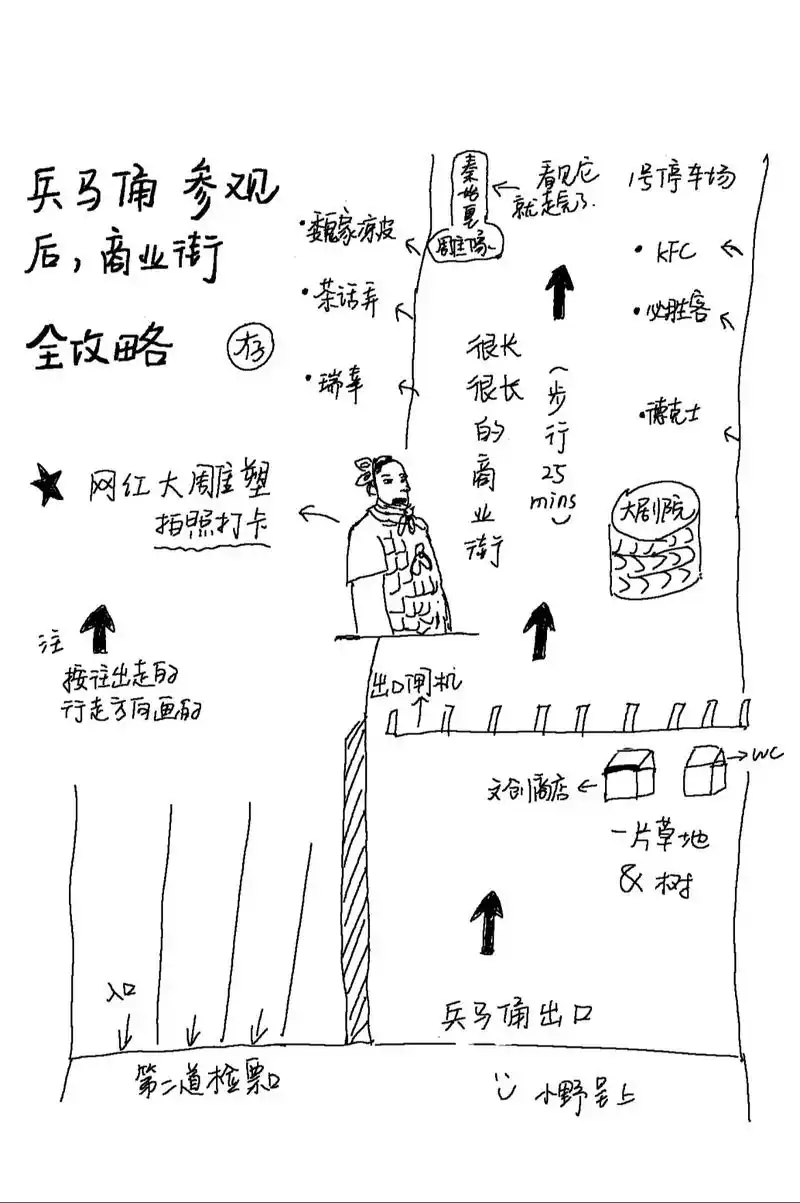 兵马俑 参观
后，商业街
全攻略
存
★ 网红大雕塑
拍照打卡
注
按往出走的
行走方向画的
•魏家凉皮
•茶话弄
•瑞幸
秦始皇
看见它
就走完了
1号停车场
•KFC
•必胜客
•德克士
很长
很长
的商业街
(步行25mins)
大剧院
出口闸机
文创商店
WC
一片草地
& 树
兵马俑出口
入口
第二道检票口
小野呈上